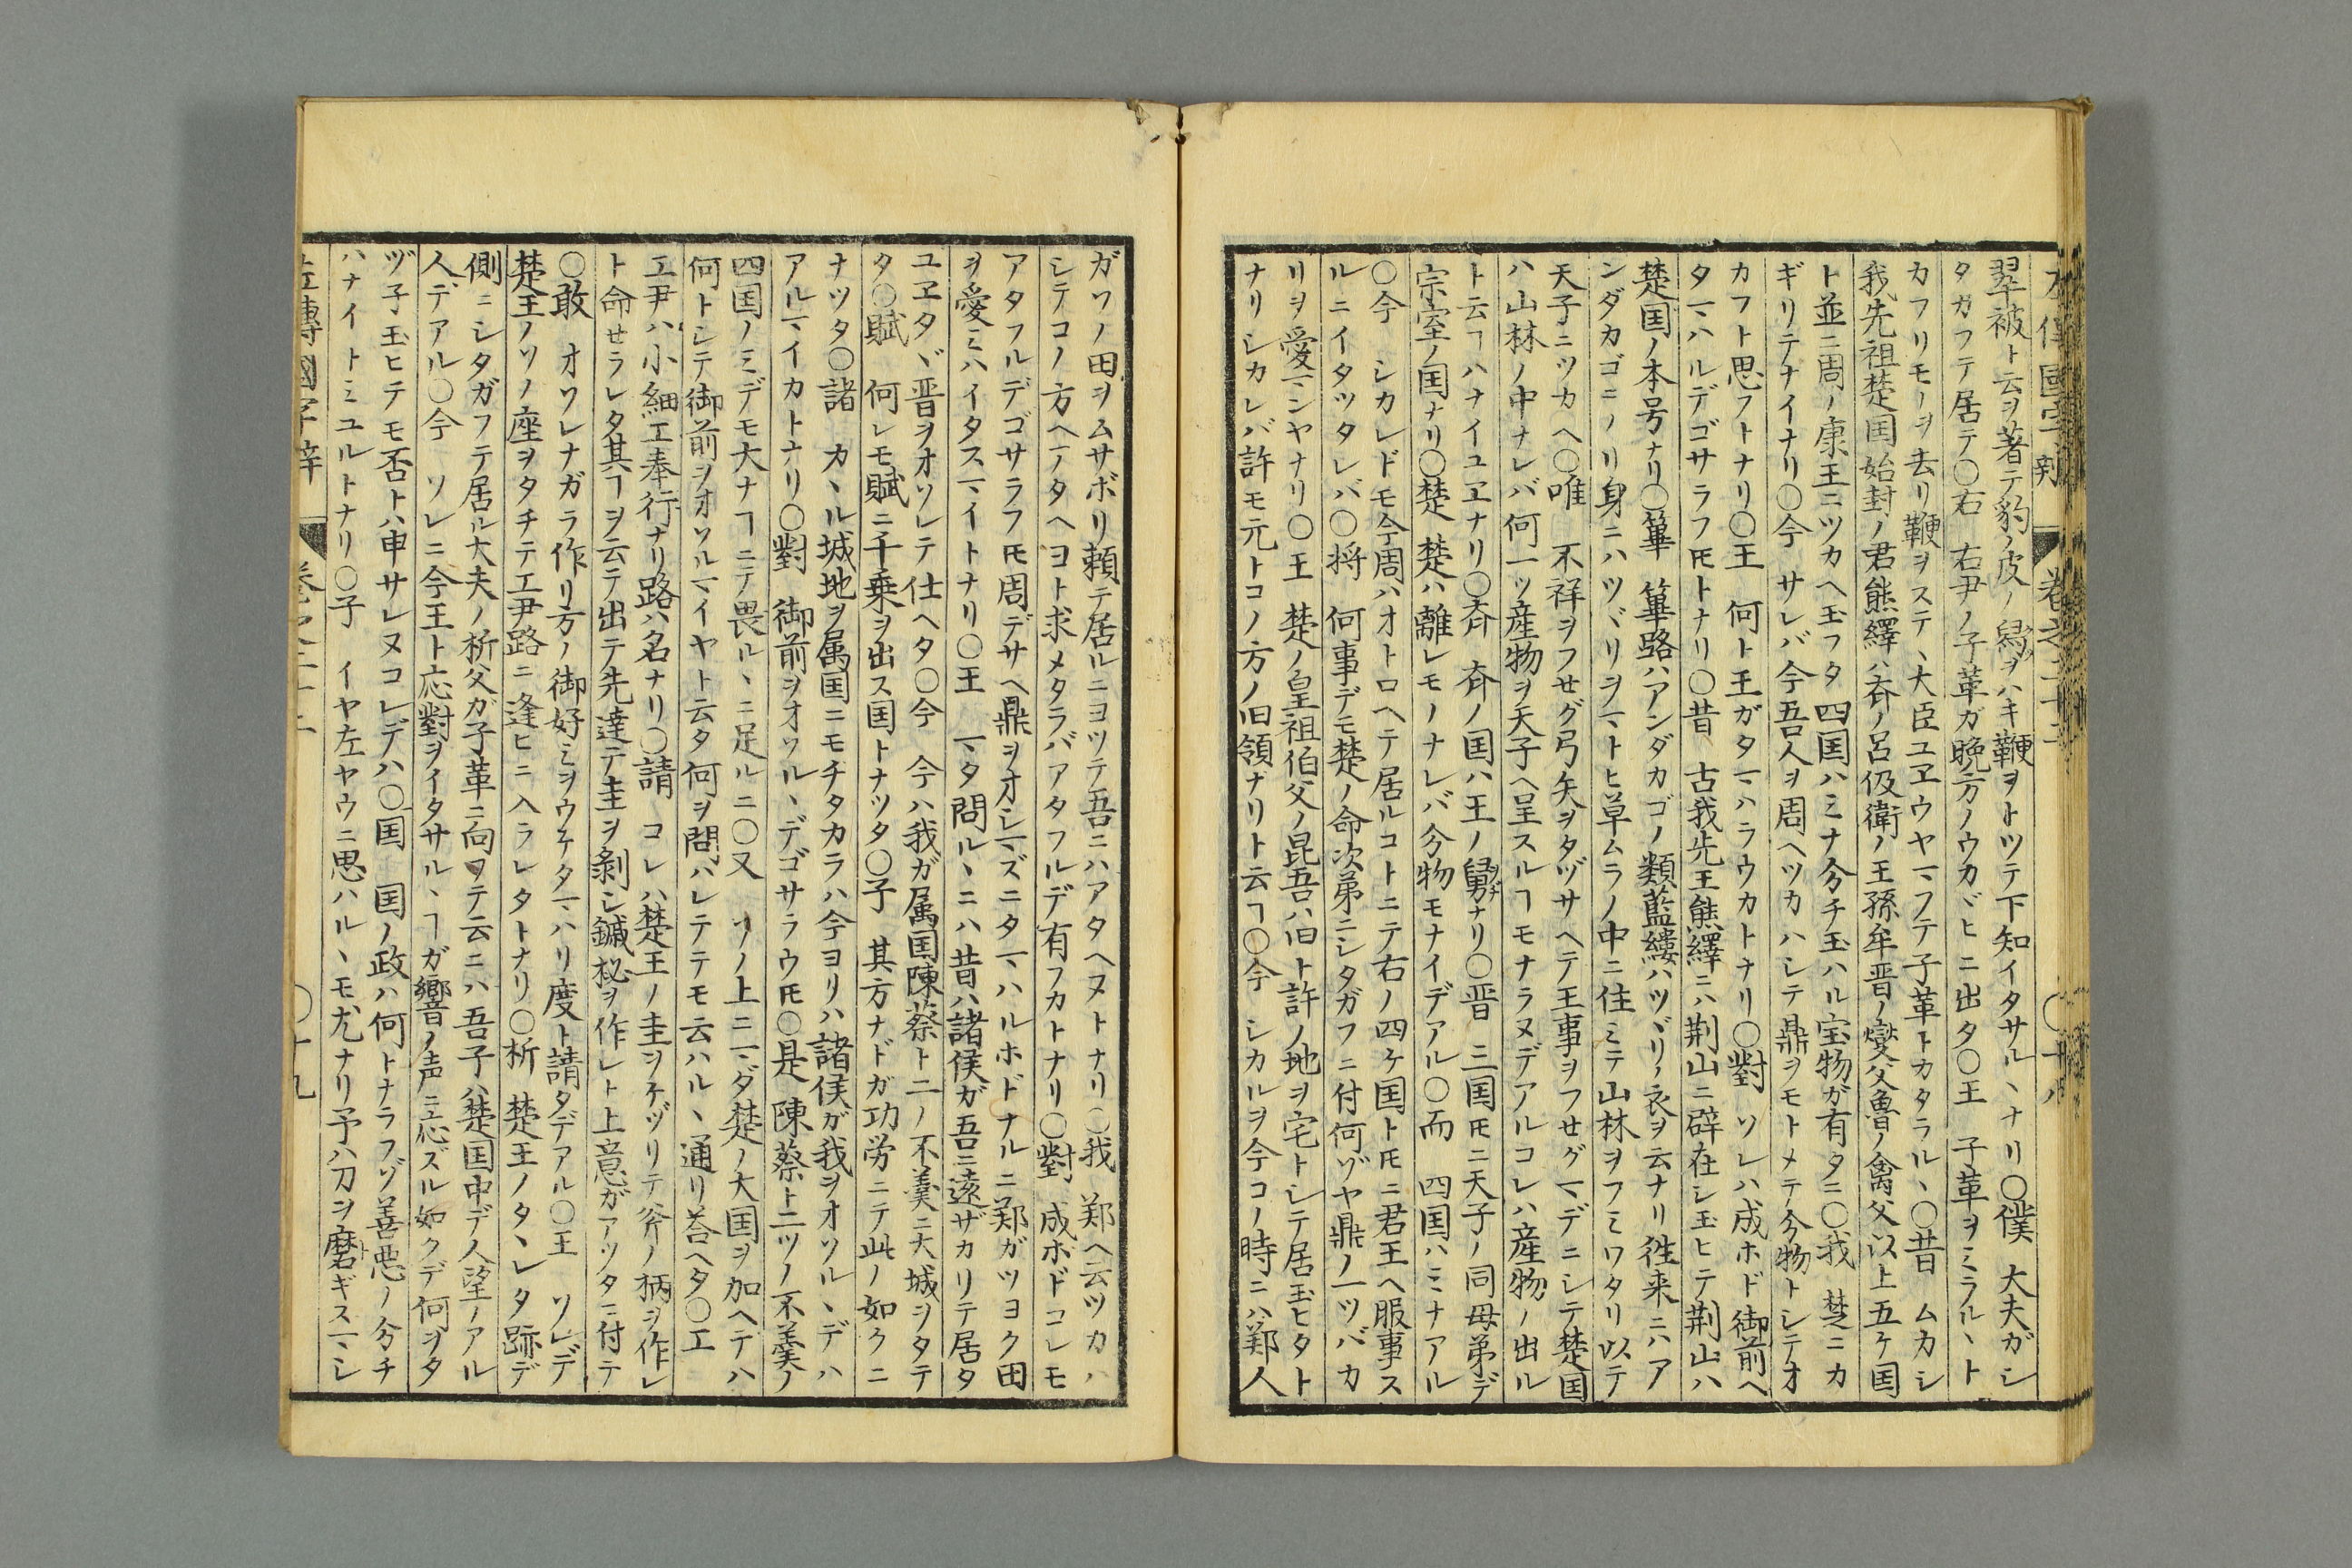 左傳國字辯 卷之二十二 〇十八
翠被ト云ヲ著テ豹ノ皮ノ舄ヲハキ鞭ヲトツテ下知イタサル丶ナリ〇僕 大夫ガシ
タガフテ居テ〇右 右尹ノ子革ガ晩方ノウカヾヒニ出タ〇王 子革ヲミラル丶ト
カフリモノヲ去リ鞭ヲステ丶大臣ユヱウヤマフテ子革トカタラル丶〇昔 ムカシ
我先祖楚国始封ノ君熊繹ハ斉ノ呂伋衛ノ王孫牟晋ノ燮父魯ノ禽父以上五ケ国
ト並ニ周ノ康王ニツカヘ玉フタ 四国ハミナ分チ玉ハル宝物ガ有タニ〇我 楚ニカ
ギリテナイナリ〇今 サレバ今吾人ヲ周ヘツカハシテ鼎ヲモトメテ分物トシテオ
カフト思フトナリ〇王 何ト王ガタマハラウカトナリ〇對 ソレハ成ホド御前ヘ
タマハルデゴサラフ𪜈トナリ〇昔 古我先王熊繹ニハ荆山ニ辟在シ玉ヒテ荆山ハ
楚国ノ本号ナリ〇篳 篳路ハアンダカゴノ類藍縷ハツヾリノ衣ヲ云ナリ徃来ニハア
ンダカゴニノリ身ニハツヾリヲマトヒ草ムラノ中ニ住ミテ山林ヲフミワタリ以テ
天子ニツカヘ〇唯 不祥ヲフせグ弓矢ヲタヅサヘテ王事ヲフせグマデニシテ楚国
ハ山林ノ中ナレバ何一ツ産物ヲ天子ヘ呈スルヿモナラヌデアルコレハ産物ノ出ル
ト云ヿハナイユヱナリ〇斉 斉ノ国ハ王ノ舅ナリ〇晋 三国𪜈ニ天子ノ同母弟デ
宗室ノ国ナリ〇楚 楚ハ離レモノナレバ分物モナイデアル〇而 四国ハミナアル
〇今 シカレドモ今周ハオトロヘテ居ルコトニテ右ノ四ケ国ト𪜈ニ君王ヘ服事ス
ルニイタツタレバ〇将 何事デモ楚ノ命次第ニシタガフニ付何ゾヤ鼎ノ一ツバカ
リヲ愛マンヤナリ〇王 楚ノ皇祖伯父ノ昆吾ハ旧ト許ノ地ヲ宅トシテ居玉ヒタト
ナリシカレバ許モ元トコノ方ノ旧領ナリト云ヿ〇今 シカルヲ今コノ時ニハ鄭人
ガワノ田ヲムサボリ頼テ居ルニヨツテ吾ニハアタヘヌトナリ〇我 鄭ヘ云ツカハ
シテコノ方ヘアタヘヨト求メタラバアタフルデ有フカトナリ〇對 成ホドコレモ
アタフルデゴサラフ𪜈周デサヘ鼎ヲオシマズニタマハルホドナルニ鄭ガツヨク田
ヲ愛ミハイタスマイトナリ〇王 マタ問ル丶ニハ昔ハ諸侯ガ吾ニ遠ザカリテ居タ
ユヱタヾ晋ヲオソレテ仕ヘタ〇今 今ハ我ガ属国陳蔡ト二ノ不羹ニ大城ヲタテ
タ〇賦 何レモ賦ニ千乗ヲ出ス国トナツタ〇子 其方ナドガ功労ニテ此ノ如クニ
ナツタ〇諸 カ丶ル城地ヲ属国ニモチタカラハ今ヨリハ諸侯ガ我ヲオソル丶デハ
アルマイカトナリ〇對 御前ヲオソル丶デゴサラウ𪜈〇是 陳蔡ト二ツノ不羹ノ
四国ノミデモ大ナヿニテ畏ル丶ニ足ルニ〇又 ソノ上ニマダ楚ノ大国ヲ加ヘテハ
何トシテ御前ヲオソルマイヤト云タ何ヲ問ハレテテモ云ハル丶通リ荅ヘタ〇工
工尹ハ小細工奉行ナリ路ハ名ナリ〇請 コレハ楚王ノ圭ヲケヅリテ斧ノ柄ヲ作レ
ト命せラレタ其ヿヲ云テ出テ先達テ圭ヲ剥シ鏚柲ヲ作レト上意ガアツタニ付テ
〇敢 オソレナガラ作リ方ノ御好ミヲウケタマハリ度ト請タデアル〇王 ソレデ
楚王ノソノ座ヲタチテ工尹路ニ逢ヒニ入ラレタトナリ〇析 楚王ノタ丶レタ跡デ
側ニシタガフテ居ル大夫ノ析父ガ子革ニ向ヲテ云ニハ吾子ハ楚国中デ人望ノアル
人デアル〇今 ソレニ今王ト応對ヲイタサル丶ヿガ響ノ声ニ応ズル如クデ何ヲタ
ヅ子玉ヒテモ否トハ申サレヌコレデハ〇国 国ノ政ハ何トナラフゾ善悪ノ分チ
ハナイトミユルトナリ〇子 イヤ左ヤウニ思ハル丶モ尤ナリ予ハ刀ヲ磨ギスマシ
左傳國字辯 卷之二十二 〇十九